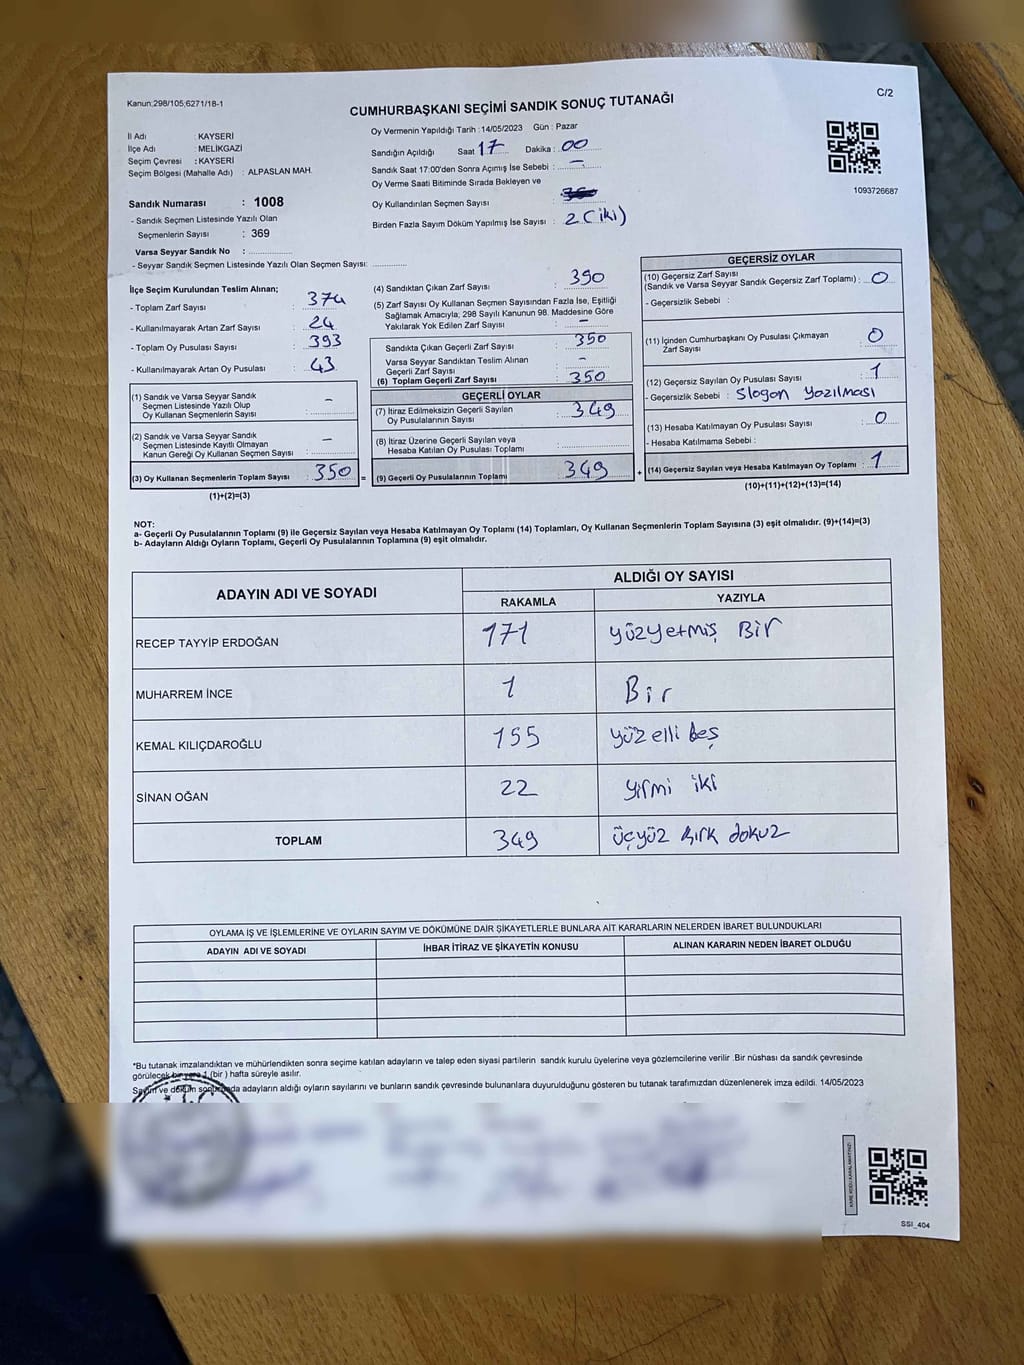 Kanun;298/105;6271/18-1
CUMHURBAŞKANI SEÇİMİ SANDIK SONUÇ TUTANAĞI
C/2
İl Adı : KAYSERİ
İlçe Adı : MELİKGAZİ
Seçim Çevresi : KAYSERİ
Seçim Bölgesi (Mahalle Adı) : ALPASLAN MAH.
Sandık Numarası : 1008
- Sandık Seçmen Listesinde Yazılı Olan
Seçmenlerin Sayısı : 369
Varsa Seyyar Sandık No : ...............
- Seyyar Sandık Seçmen Listesinde Yazılı Olan Seçmen Sayısı: ............
Oy Vermenin Yapıldığı Tarih :14/05/2023 Gün : Pazar
Sandığın Açıldığı Saat 17 Dakika : 00
Sandık Saat 17:00'den Sonra Açımış İse Sebebi : –
Oy Verme Saati Bitiminde Sırada Bekleyen ve
Oy Kullandırılan Seçmen Sayısı :
Birden Fazla Sayım Döküm Yapılmış İse Sayısı : 2 (iki)
1093726687
İlçe Seçim Kurulundan Teslim Alınan;
- Toplam Zarf Sayısı : 374
- Kullanılmayarak Artan Zarf Sayısı : 24
- Toplam Oy Pusulası Sayısı : 393
- Kullanılmayarak Artan Oy Pusulası : 43
(1) Sandık ve Varsa Seyyar Sandık
Seçmen Listesinde Yazılı Olup
Oy Kullanan Seçmenlerin Sayısı : –
(2) Sandık ve Varsa Seyyar Sandık
Seçmen Listesinde Kayıtlı Olmayan
Kanun Gereği Oy Kullanan Seçmen Sayısı : –
(3) Oy Kullanan Seçmenlerin Toplam Sayısı : 350 =
(1)+(2)=(3)
(4) Sandıktan Çıkan Zarf Sayısı : 350
(5) Zarf Sayısı Oy Kullanan Seçmen Sayısından Fazla İse, Eşitliği
Sağlamak Amacıyla; 298 Sayılı Kanunun 98. Maddesine Göre
Yakılarak Yok Edilen Zarf Sayısı : –
Sandıkta Çıkan Geçerli Zarf Sayısı : 350
Varsa Seyyar Sandıktan Teslim Alınan
Geçerli Zarf Sayısı : –
(6) Toplam Geçerli Zarf Sayısı : 350
GEÇERLİ OYLAR
(7) İtiraz Edilmeksizin Geçerli Sayılan
Oy Pusulalarının Sayısı : 349
(8) İtiraz Üzerine Geçerli Sayılan veya
Hesaba Katılan Oy Pusulası Toplamı :
(9) Geçerli Oy Pusulalarının Toplamı : 349 +
GEÇERSİZ OYLAR
(10) Geçersiz Zarf Sayısı
(Sandık ve Varsa Seyyar Sandık Geçersiz Zarf Toplamı) : 0
- Geçersizlik Sebebi :
(11) İçinden Cumhurbaşkanı Oy Pusulası Çıkmayan
Zarf Sayısı : 0
(12) Geçersiz Sayılan Oy Pusulası Sayısı : 1
- Geçersizlik Sebebi : Slogon Yazılması
(13) Hesaba Katılmayan Oy Pusulası Sayısı : 0
- Hesaba Katılmama Sebebi :
(14) Geçersiz Sayılan veya Hesaba Katılmayan Oy Toplamı : 1
(10)+(11)+(12)+(13)=(14)
NOT:
a- Geçerli Oy Pusulalarının Toplamı (9) ile Geçersiz Sayılan veya Hesaba Katılmayan Oy Toplamı (14) Toplamları, Oy Kullanan Seçmenlerin Toplam Sayısına (3) eşit olmalıdır. (9)+(14)=(3)
b- Adayların Aldığı Oyların Toplamı, Geçerli Oy Pusulalarının Toplamına (9) eşit olmalıdır.
ADAYIN ADI VE SOYADI ALDIĞI OY SAYISI
RAKAMLA YAZIYLA
RECEP TAYYİP ERDOĞAN 171 yüzyetmiş Bir
MUHARREM İNCE 1 Bir
KEMAL KILIÇDAROĞLU 155 yüz elli beş
SİNAN OĞAN 22 yirmi iki
TOPLAM 349 üçyüz kırk dokuz
OYLAMA İŞ VE İŞLEMLERİNE VE OYLARIN SAYIM VE DÖKÜMÜNE DAİR ŞİKAYETLERLE BUNLARA AİT KARARLARIN NELERDEN İBARET BULUNDUKLARI
ADAYIN ADI VE SOYADI İHBAR İTİRAZ VE ŞİKAYETİN KONUSU ALINAN KARARIN NEDEN İBARET OLDUĞU
*Bu tutanak imzalandıktan ve mühürlendikten sonra seçime katılan adayların ve talep eden siyasi partilerin sandık kurulu üyelerine veya gözlemcilerine verilir .Bir nüshası da sandık çevresinde
görülecek bir yere 1 (bir ) hafta süreyle asılır.
Sayım ve döküm sonunda adayların aldığı oyların sayılarını ve bunların sandık çevresinde bulunanlara duyurulduğunu gösteren bu tutanak tarafımızdan düzenlenerek imza edildi. 14/05/2023
SSI_404